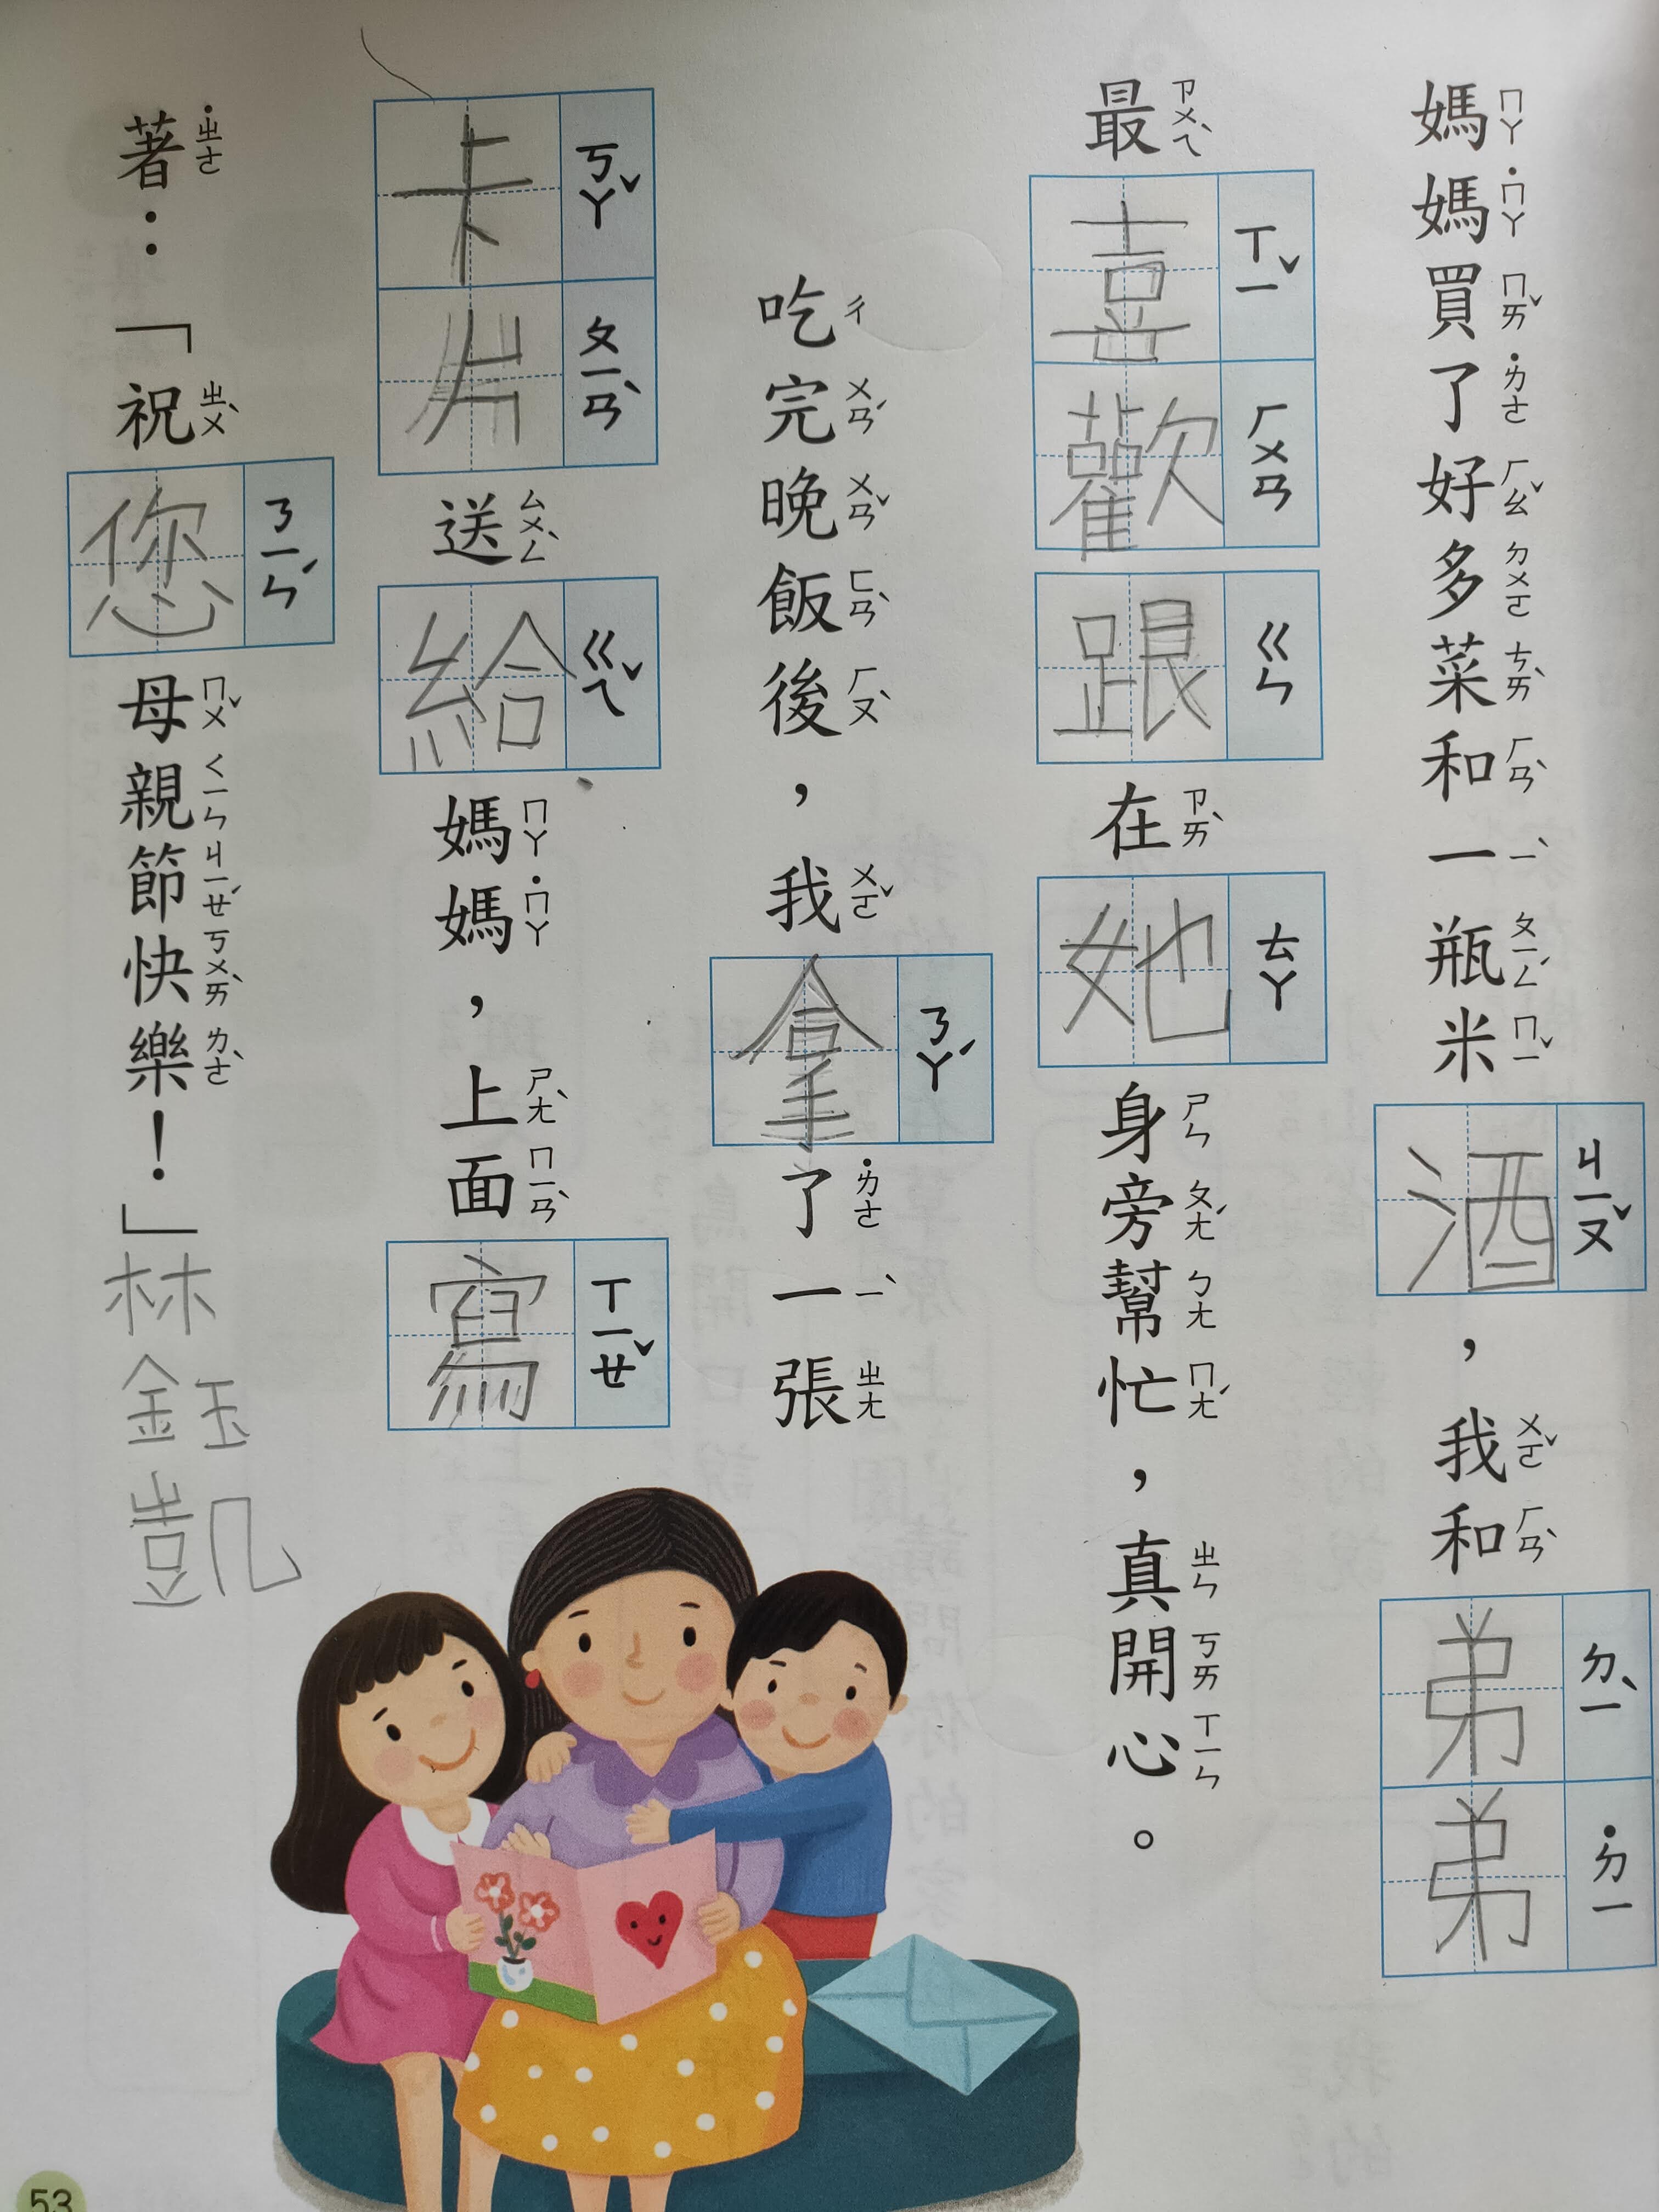 媽媽買了好多菜和一瓶米酒，我和弟弟
最喜歡跟在她身旁幫忙，真開心。
吃完晚飯後，我拿了一張
卡片送給媽媽，上面寫
著：「祝您母親節快樂！」林鈺凱
53